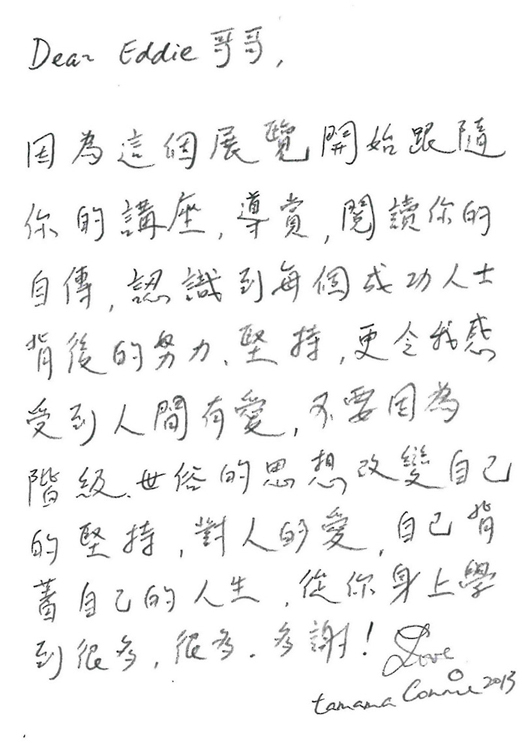 Dear Eddie 哥哥,
因為這個展覽開始跟隨
你的講座,導賞,閱讀你的
自傳,認識到每個成功人士
背後的努力、堅持,更令我感
受到人間有愛,不要因為
階級、世俗的思想改變自己
的堅持,對人的愛,自己背
著自己的人生,從你身上學
到很多,很多。多謝!
Love
tamama Connie 2013